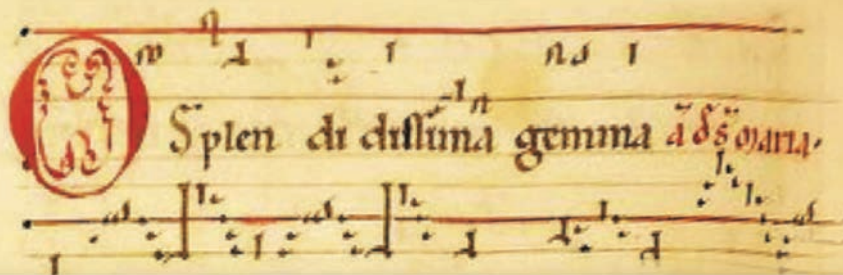 O Splen di dissima gemma ā d s̄ maria.